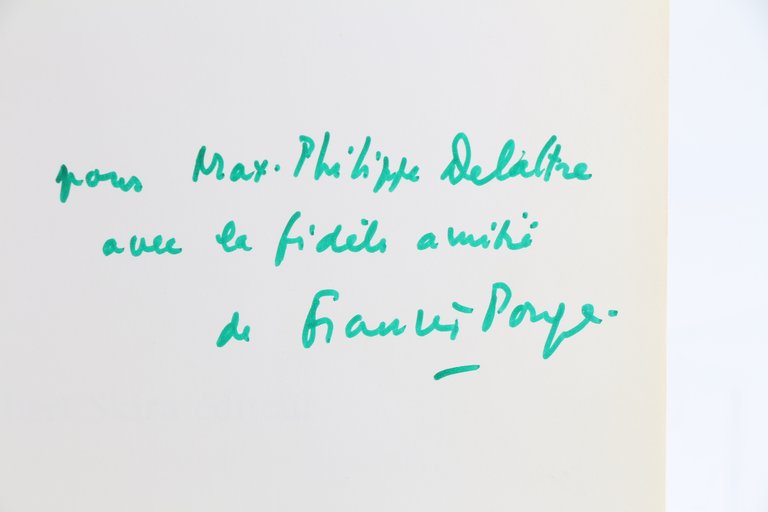 pour Max-Philippe Delattre
avec la fidèle amitié
de Francis Ponge.